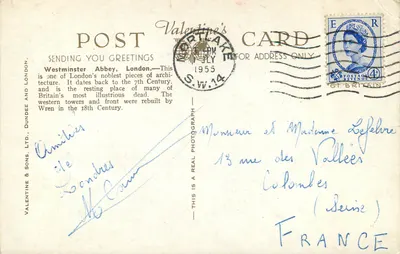 Valentine's
POST CARD
SENDING YOU GREETINGS
FOR ADDRESS ONLY
Westminster Abbey, London.—This
is one of London's noblest pieces of archi-
tecture. It dates back to the 7th Century,
and is the resting place of many of
Britain's most illustrious dead. The
western towers and front were rebuilt by
Wren in the 18th Century.
VALENTINE & SONS, LTD., DUNDEE AND LONDON.
THIS IS A REAL PHOTOGRAPH
MORTLAKE
PM
JLY
1953
S.W.14
E R
POSTAGE
REVENUE
4D
OF BRITAIN
Amitiés
de
Londres
Monsieur et Madame Lefebvre
13 rue des Vallées
Colombes
(Seine)
FRANCE